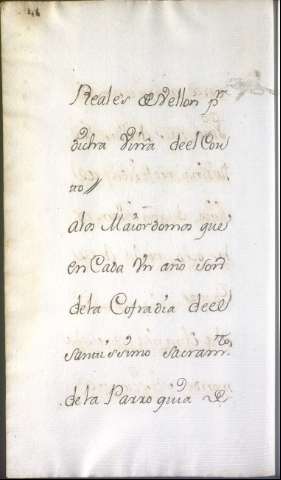 Reales de Vellon pr
dicha Vissa deel Con
tto
a los Maiordomos que
en Cada Un año son
de la Cofradia de el
Santissimo Sacramto.
de la Parroquia de